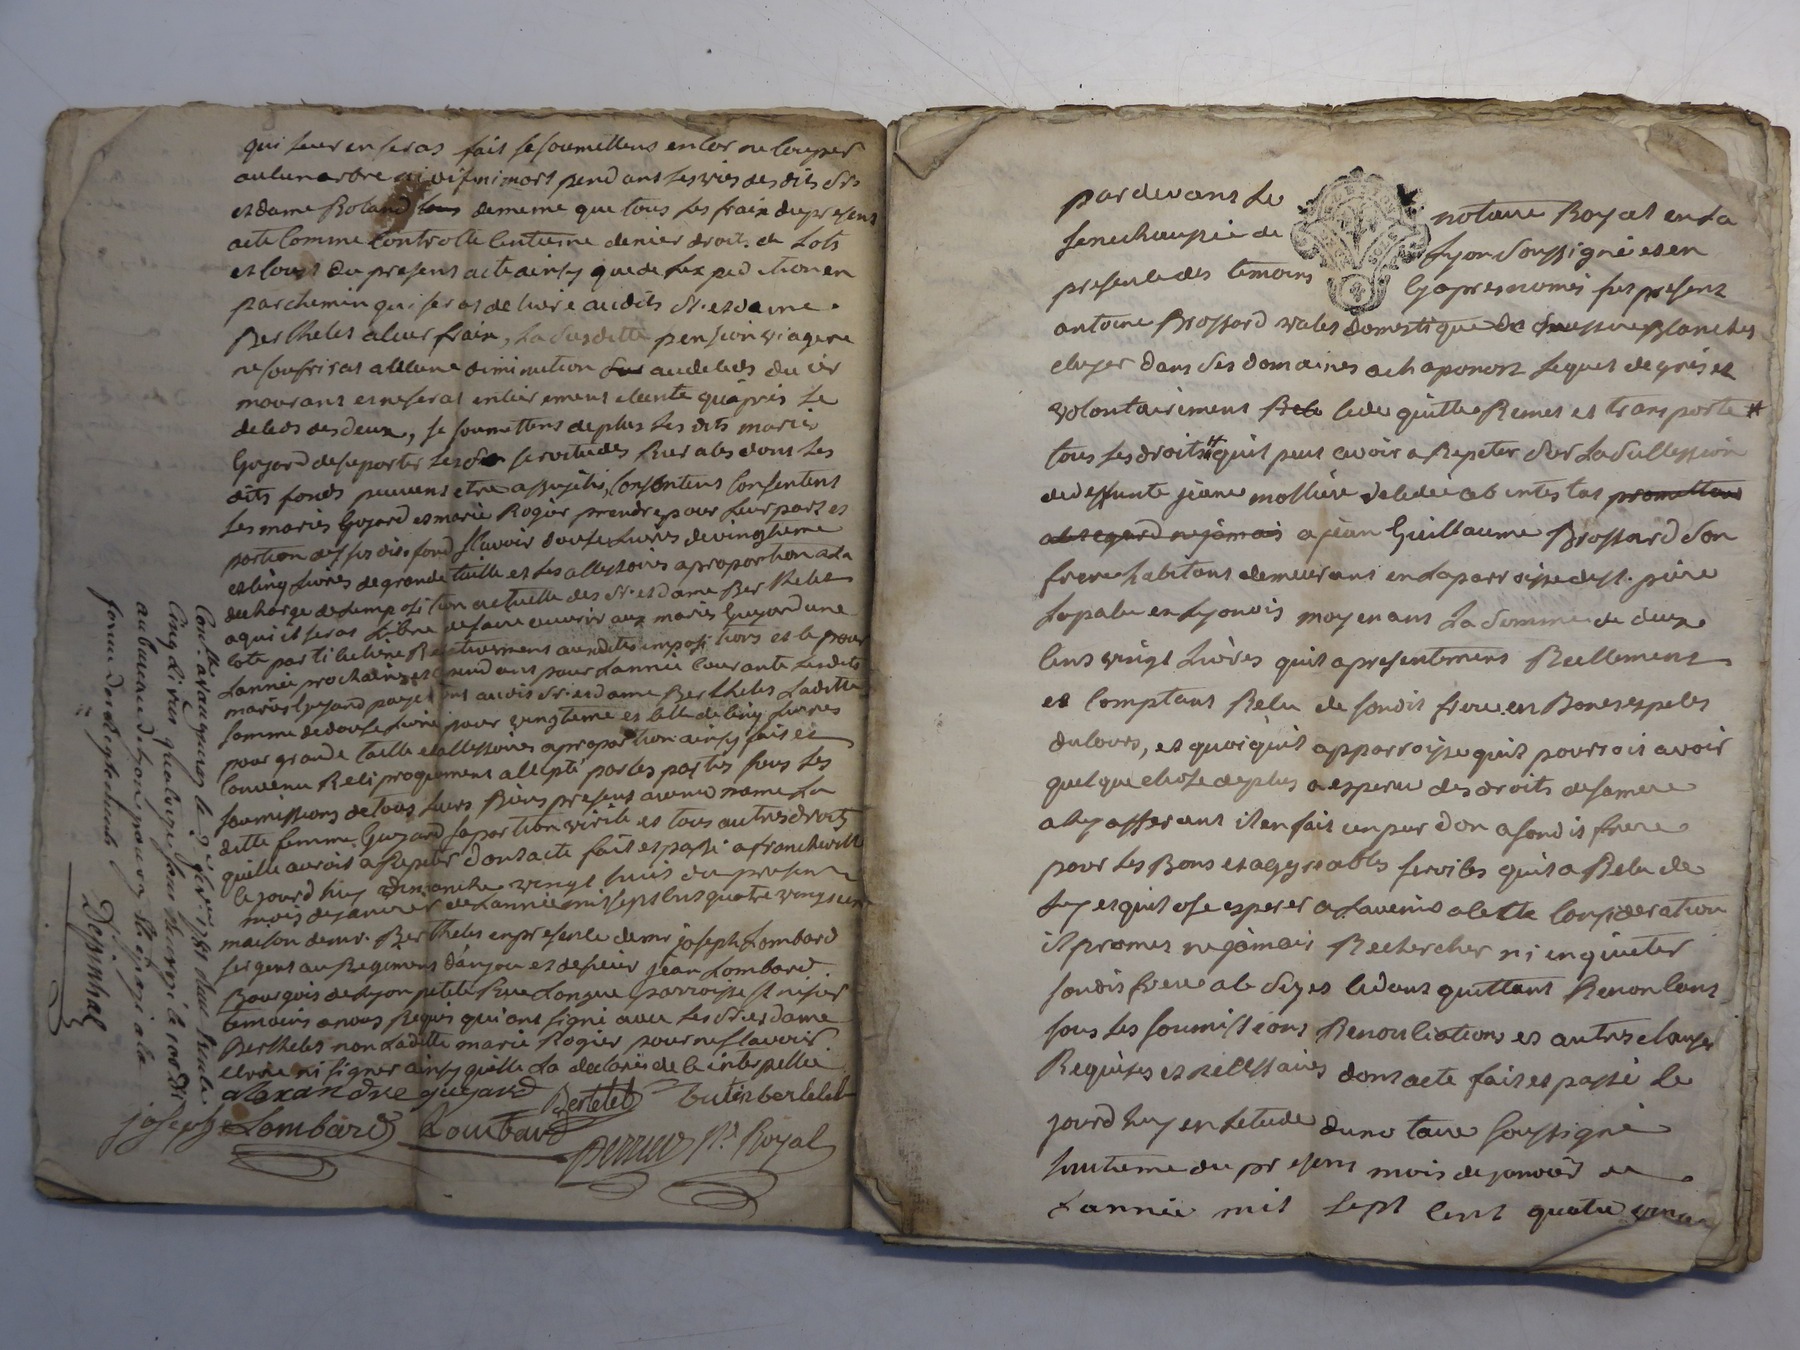 qui leur en seras fait se soumettens en cor ne couper
aucun arbre ni vif ni mort pend ans les vies des dits Srs
et dame Roland demême que tous les fraix du present
acte comme controlle centieme denier droit de Lots
et cours du present acte ainsy que de Lexpedition en
parchemin qui seras de livré audits Sr. et dame
Berthelet a leur fraix, La Susditte pension viagere
ne soufriras aucune diminution au deceds du 1er
mourans et ne seras entierement eteinte quâprés le
deceds des deux, se soumettens de plus Les dits mariés
Guyard de suporter les servitudes Rurales dont Les
dits fonds peuvent etre assujetis, Consentens
Les mariés Guyard et marie Rogier prendre pour Leur part et
portion desdits fond Scavoir douse Livres de vingtieme
et cinq Livres de grande taille et Les assessoires a proportion a La
decharge de Limposition actuelle des Sr. et dame Berthelet
a qui il seras Libre de faire ouvrir aux mariés Guyard une
cote particuliere aux dites impositions et ce pour
Lannée prochaine et pend ans pour Lannée courante Lesdits
mariés Guyard payerons audit Sr. et dame Berthelet Laditte
somme de douse Livre pour vingtieme et celle de cinq Livres
pour grande taille et assessoires a proportion ainsy fait et
convenu Reciproquement accepté par les parties sous Les
soumissions de tous Leurs Biens present avenir meme La
ditte femme Guyard sa portion virile et tous autres droits
quelle auroit a Repeter dont acte fait et passé a francheville
le jourd huy Dimanche vingt huit du present
mois de janvier de Lannée mil sept cens quatre vingt un
maison de mr. Berthelet en presence de mr joseph Lombard
sergent au Regiment d'anjou et de sieur jean Lombard
Bourgois de Lyon petite Rue Longue parroisse St nisier
temoins a nous Requis qui ont signé avec Les Sr. et dame
Berthelet non Laditte marie Rogier pour ne scavoir
ecrire ni signer ainsy quelle La declaré de ce interpellée.
alexandre guyard Bertelet butin bertelet
joseph Lombard Lombard
Perrier Nre. Royal
Conllé. a vaugneray le 9 fevrier 1781
cinq Livres quatorze sous
au bureau de Lyon pour
Despinhal
par devans Le notaire Royal en La
senechaussée de Lyon Soussigné et en
presence des temoins cy apres només fut present
antoine Brossard valet domestique de Blanchet
ecuyer dans ses domaines a chaponost Lequel de gré et
volontairement cede quitte Remet et transporte #
tous Les droits # quil peut avoir a Repeter Sur La Succession
de deffunte jeane moliere decedée ab intestat promettant
a cet egard ne jamais a jean Guillaume Brossard Son
frere habitant demeurant en La parroisse de St. piere
Lapalu en Lyonois moyenans La Somme de deux
cens vingt Livres quil a presentement Reellement
et comptant Reçu de son dit frere en Bones especes
du cours, et quoiquil apparroisse quil pourroit avoir
quelque chose de plus a esperer des droits de sa mere
a luy afferant il en fait un pur don a son dit frere
pour Les Bons et agreables services quil a Reçu de
Luy et quil ose esperer a Lavenir a cette consideration
il promet ne jamais Rechercher ni inquieter
son dit frere a ce Sujet cedant quittant Renoncant
sous Les soumissions Renonciations et autres clauses
Requises et necessaires dont acte fait et passé le
jourd huy en Letude du notaire soussigné
huitieme du present mois de janvier de
Lannée mil sept cent quatre vingt